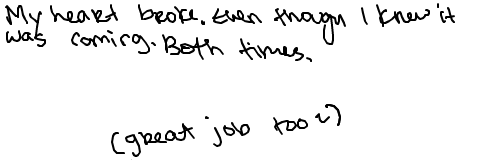 My heart broke. Even though I knew it
was coming. Both times.
(great job too ~)